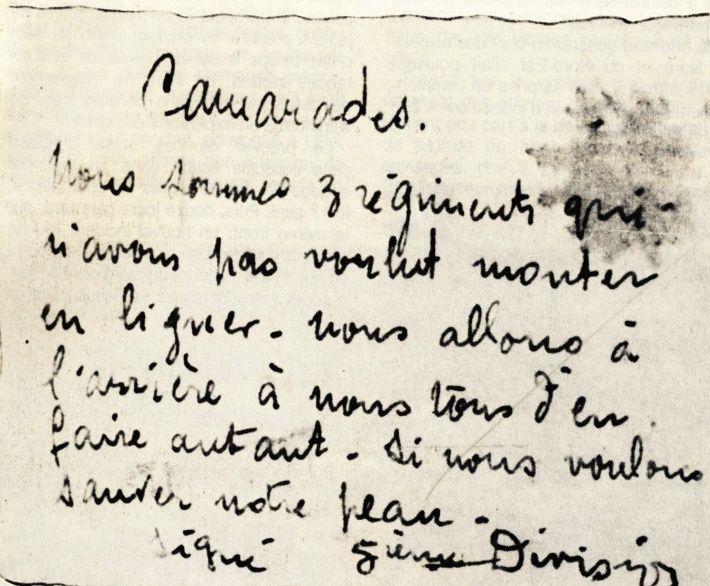 Camarades.
Nous sommes 3 régiments qui
n'avons pas voulut monter
en ligner - nous allons à
l'arrière à nous tous d'en
faire autant - si nous voulons
sauver notre peau -
signé 5ième Division